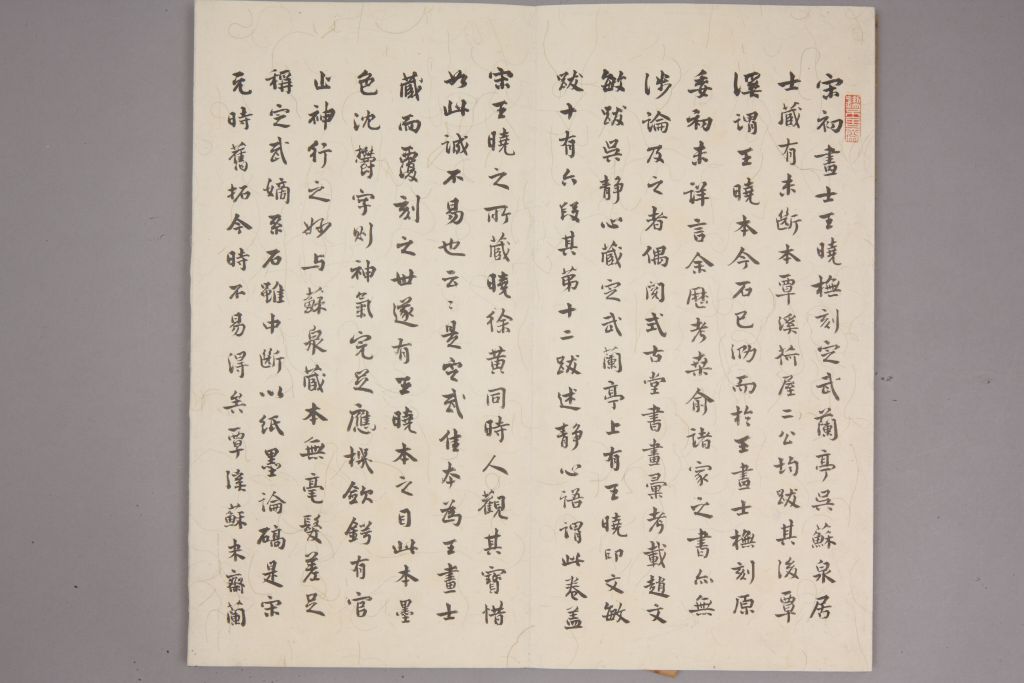 宋初畫士王曉橅刻定武蘭亭吳蘇泉居
士藏有未斷本覃溪荷屋二公均跋其後覃
溪謂王曉本今石已泐而於王畫士橅刻原
委初未詳言余歷考桑俞諸家之書亦無
涉論及之者偶閱式古堂書畫彙考載趙文
敏跋吳靜心藏定武蘭亭上有王曉印文敏
跋十有六段其第十二跋述靜心語謂此卷蓋
宋王曉之所藏曉徐黃同時人觀其寶惜
如此誠不易也云〻是定武佳本為王畫士
藏而覆刻之世遂有王曉本之目此本墨
色沈鬱字則神氣完足應模欽鍔有官
止神行之妙与蘇泉藏本無毫髮差足
稱定武嫡系石雖中斷以紙墨論礄是宋
元時舊拓今時不易得矣覃溪蘇米齋蘭